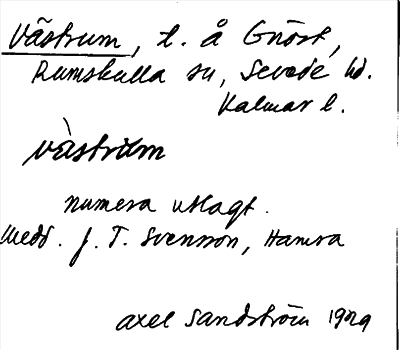 Västrum, t. å Gnöst,
Rumskulla sn, Sevede hd.
Kalmar l.
vàstrum
numera utlagt.
Medd. J. T. Svensson, Hamra
Axel Sandström 1929